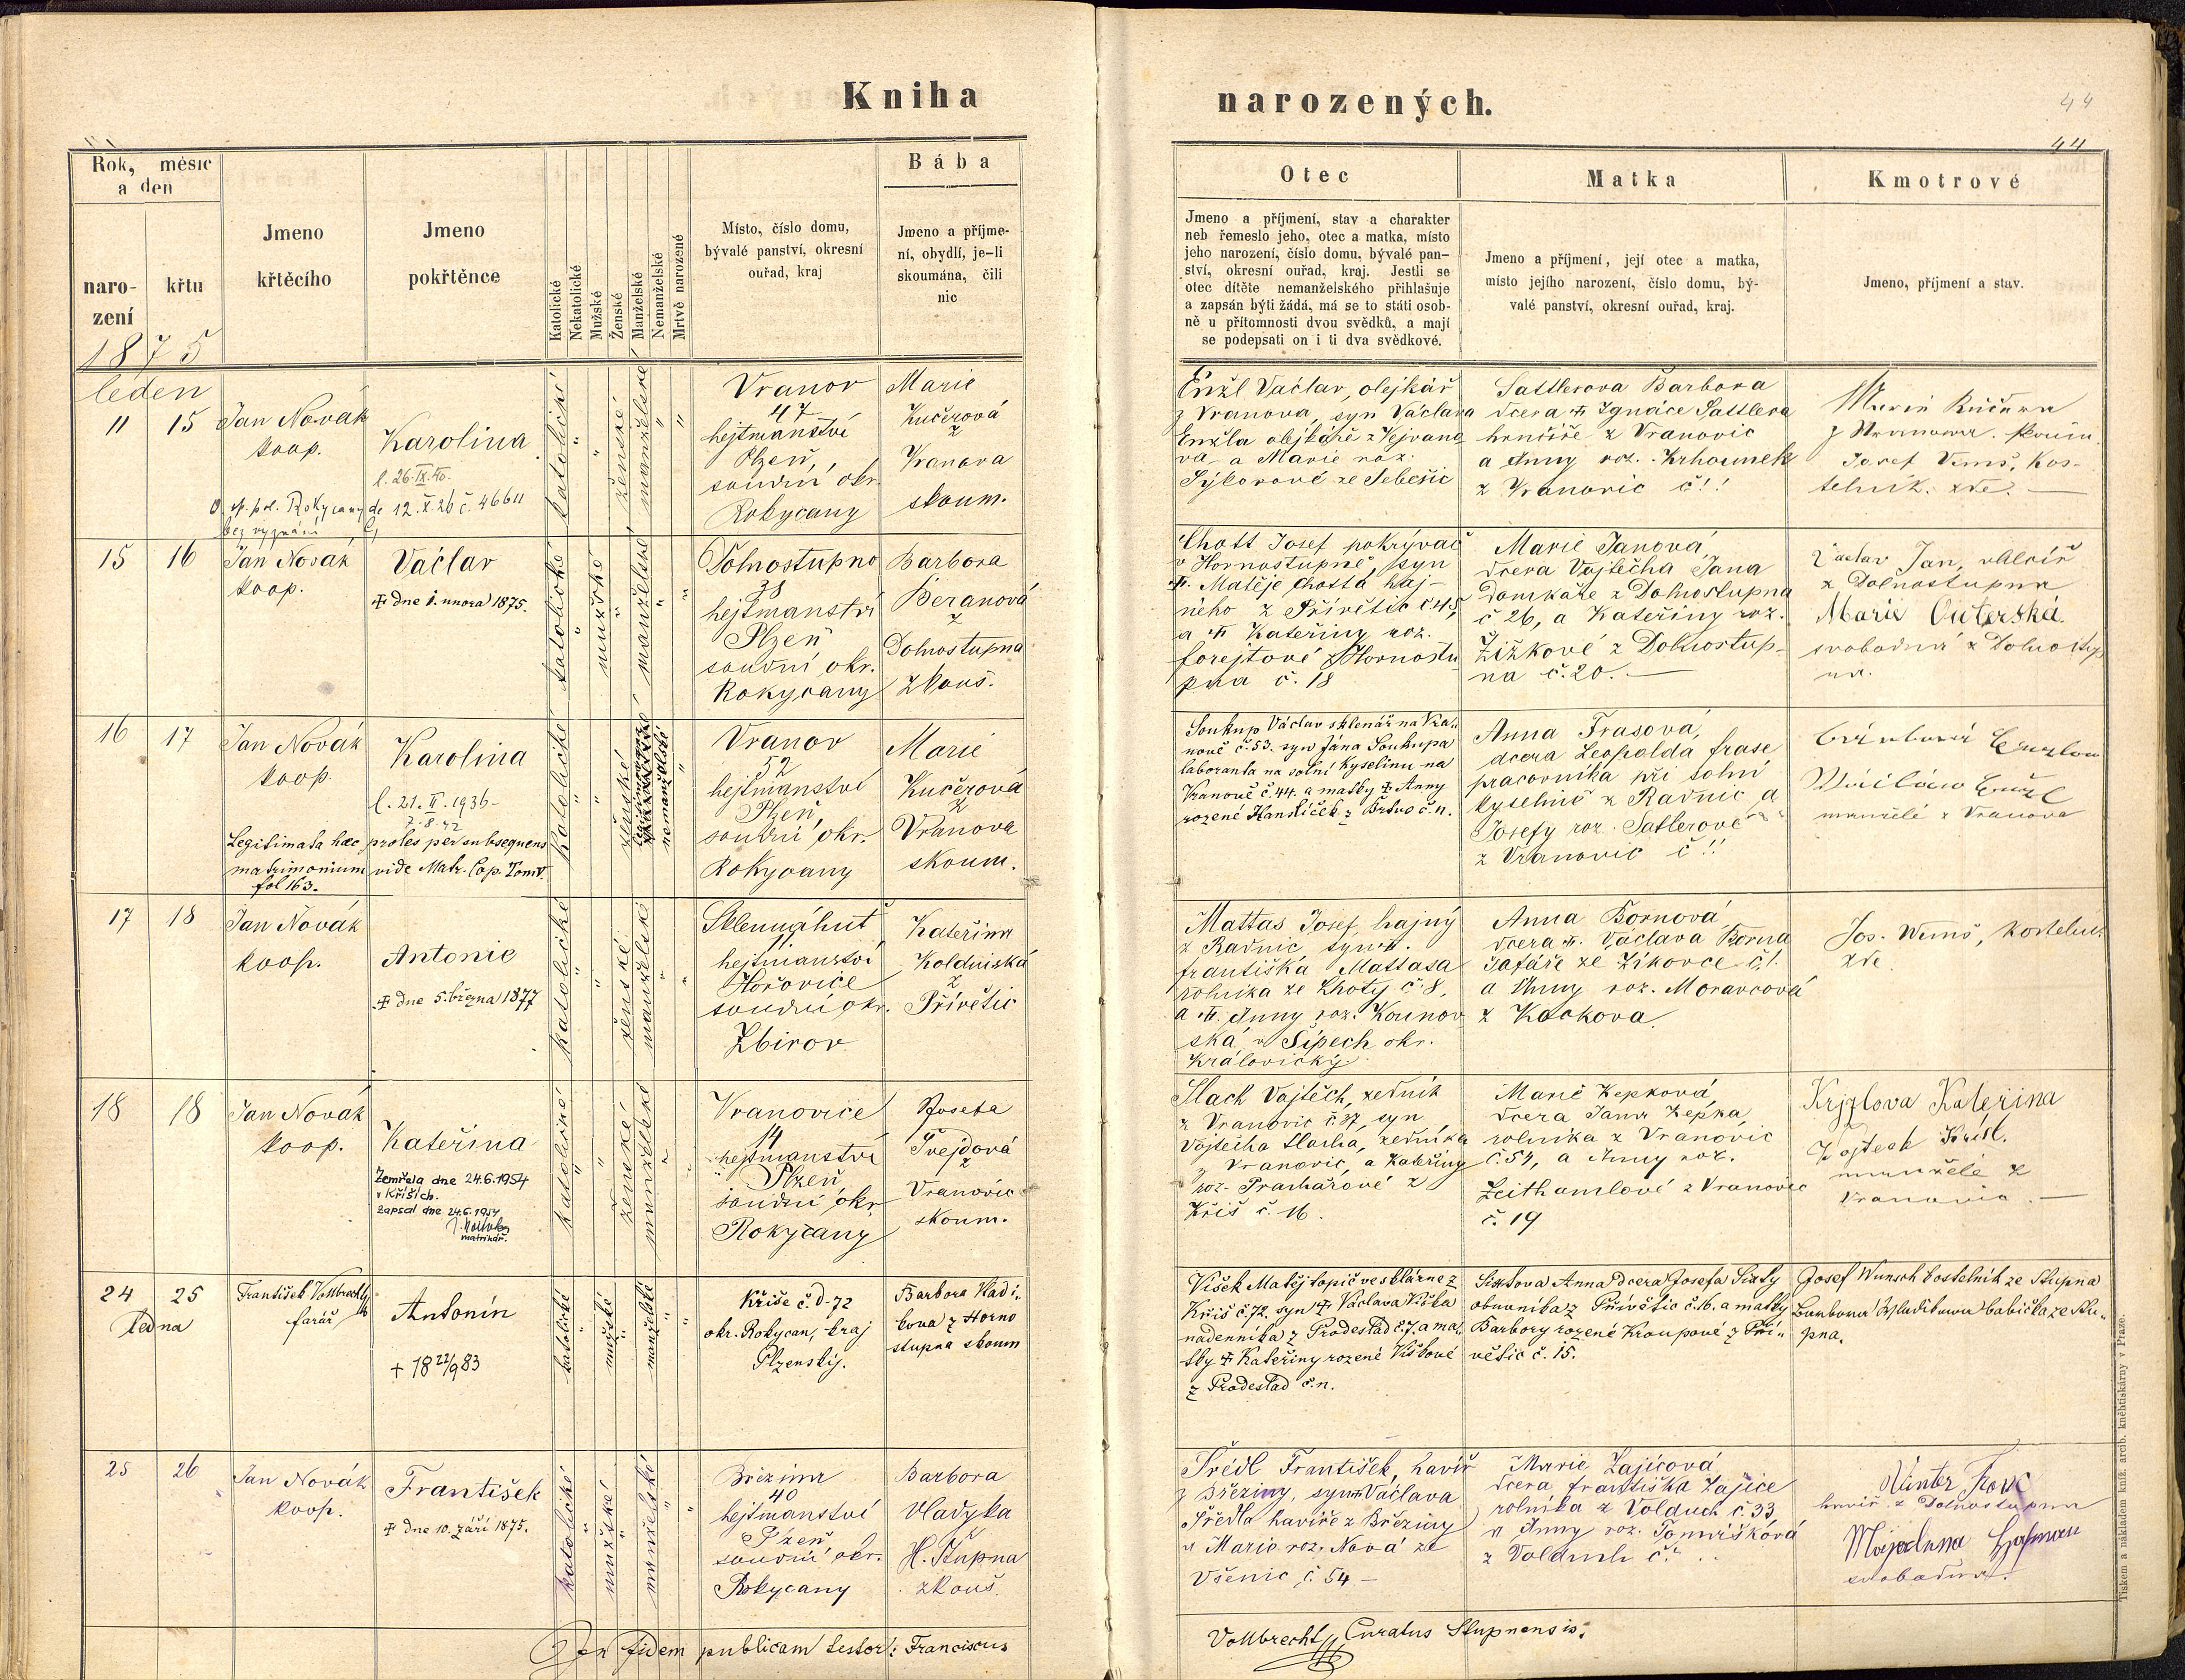 Kniha
narozených.
44
44
Rok, měsíc
a den
naro-
zení
křtu
Jmeno
křtěcího
Jmeno
pokřtěnce
Katolické
Nekatolické
Mužské
Ženské
Manželské
Nemanželské
Mrtvě narozené
Místo, číslo domu,
bývalé panství, okresní
ouřad, kraj
Bába
Jmeno a příjme-
ní, obydlí, je-li
skoumána, čili
nic
Otec
Jmeno a příjmení, stav a charakter
neb řemeslo jeho, otec a matka, místo
jeho narození, číslo domu, bývalé pan-
ství, okresní ouřad, kraj. Jestli se
otec dítěte nemanželského přihlašuje
a zapsán býti žádá, má se to státi osob-
ně u přítomnosti dvou svědků, a mají
se podepsati on i ti dva svědkové.
Matka
Jmeno a příjmení, její otec a matka,
místo jejího narození, číslo domu, bý-
valé panství, okresní ouřad, kraj.
Kmotrové
Jmeno, přijmení a stav.
1875
leden
11
15
Jan Novák
koop.
Karolina
l. 26.IX.40.
Rokycany de 12.X.26 č. 46611
bez vyznání
katolické
"
"
ženské
manželské
"
"
Vranov
47
hejtmanství
Plzeň,
soudní okr.
Rokycany
Marie
Kučerová
z
Vranova
skoum.
Enžl Václav, olejkář
z Vranova, syn Václava
Enžla olejkáře z Vejvano
va a Marie roz.
Sýkorové ze Sebečic
Sattlerova Barbora
dcera † Ignáce Sattlera
hrnčíře z Vranovic
a Anny roz.
z Vranovic č!!
Marie Kučera
z Vranowa. skoum.
Josef Vunš, Kos-
telník. zde.
15
16
Jan Novák
koop.
Václav
† dne 1. unora 1875.
katolické
"
mužské
"
manželské
"
"
Dolnostupno
38
hejtmanství
Plzeň
soudní okr.
Rokycany
Barbora
Beranová
z
Dolnostupna
zkouš.
Chott Josef pokrývač
v Hornostupně, syn
†. Matěje Chotta haj-
ného z Přívětic č 45,
a † Kateřiny roz.
forejtové z Hornostu
pna č. 18
Marie Janová,
dcera Vojtěcha Jana
domkáře z Dolnostupna
č 26, a Kateřiny roz.
Žižkové z Dolnostup-
na č. 20.
Václav Jan,
z Dolnostupna
Marie
svobodná z Dolnostup
na.
16
17
Jan Novák
koop.
Karolina
l. 21. II. 1936-
7.8.42
Legitimata haec proles per subsequens
matrimonium vide Matr. Cop. Tom V.
fol 163.
katolické
"
"
ženské
nemanželské
"
Vranov
52
hejtmanství
Plzeň,
soudní okr.
Rokycany
Marie
Kučerová
z
Vranova
skoum.
Soukup Václav sklenář na Vra-
nově č. 53. syn Jána Soukupa
laboranta na solní kyselinu na
Vranově č. 44. a matky † Anny
rozené Hanslíček z Břas č. n.
Anna Frasová,
dcera Leopolda frase
pracovníka při solní
kyselině z Radnic a
Josefy roz. Satlerové
z Vranovic č!!
manželé z Vranova
17
18
Jan Novák
koop.
Antonie
† dne 5. března 1877
katolické
"
"
ženské
manželské
"
"
Sklennáhuť
11
hejtmanství
Hořovice
soudní okr.
Zbirov
Kateřina
Koldinská
z
Přívětic
Mattas Josef, hajný
z Radnic, syn †.
františka Mattasa
rolníka ze Lhoty č. 8,
a †. Anny roz. Kounov
ská v Šípech okr.
Královický.
Anna Bornová,
dcera †. Václava Borna
šafáře ze Zíkovce č!.
a Anny roz. Moravcová
z Kockova.
Jos. Wunš, kostelník
zde
18
18
Jan Novák
koop.
Kateřina
Zemřela dne 24.6.1954
v Kříších.
Zapsal dne 24.6.1954
matrikář.
katolické
"
"
ženské
manželské
"
"
Vranovice
14
hejtmanství
Plzeň
soudní okr
Rokycany
Josefa
Tvejdová
z
Vranovic
skoum.
Slach Vojtěch, zedník
z Vranovic č. 37, syn
Vojtěcha Slacha, zedníka
z Vranovic, a Kateřiny
roz. Prachařové z
Kříš č. 16.
Marie Kepková,
dcera Jana Kepka,
rolníka z Vranovic
č. 54, a Anny roz.
Leithamlové z Vranovic
č. 19
Krjzlova Kateřina
Vojtech Krisl.
manželé z
Vranovic.
24
25
ledna
František Vollbrecht
farář
Antonín
† 18 22/9 83
katolické
"
mužské
"
manželské
"
"
Kříše č. d. 72
okr. Rokycan, kraj
Plzenský.
Barbora Vladi-
kova z Horno
stupna skoum
Víšek Matěj topič ve sklárně z
Kříš č. 72. syn † Václava Víška
nadenníka z Prodeslad č. 7. a ma-
tky † Kateřiny rozené Víškové
z Prodeslad č. n.
Sixtova Anna dcera Josefa Sixty
obuvníka z Přívětic č. 16. a matky
Barbory rozené Kroupové z Pří-
větic č. 15.
Josef Wunsch kostelník ze Stupna
Barbora Wladikowa babička ze Stu-
pna.
25
26
Jan Novák
koop.
František
† dne 10. září 1875.
katolické
"
mužské
"
manželské
"
"
Březina
40
hejtmanství
Plzeň
soudní okr.
Rokycany
Barbora
Vladyka
z
H. Stupna
zkouš.
Šrédl František, havíř
z Březiny, syn † Václava
Šrédla havíře z Březiny
a Marie roz. Nová ze
Všenic č. 54 –
Marie Zajícová,
dcera františka Zajíce
rolníka z Volduch č. 33,
a Anny roz. Tomášková
z Volduch č.
Winter
havíř z Dolnostupna
svobodna.
In fidem publicam testor: Franciscus
Vollbrecht, Curatus Stupnensis.
Tiskem a nákladem kníž. arcib. kněhtiskárny v Praze.